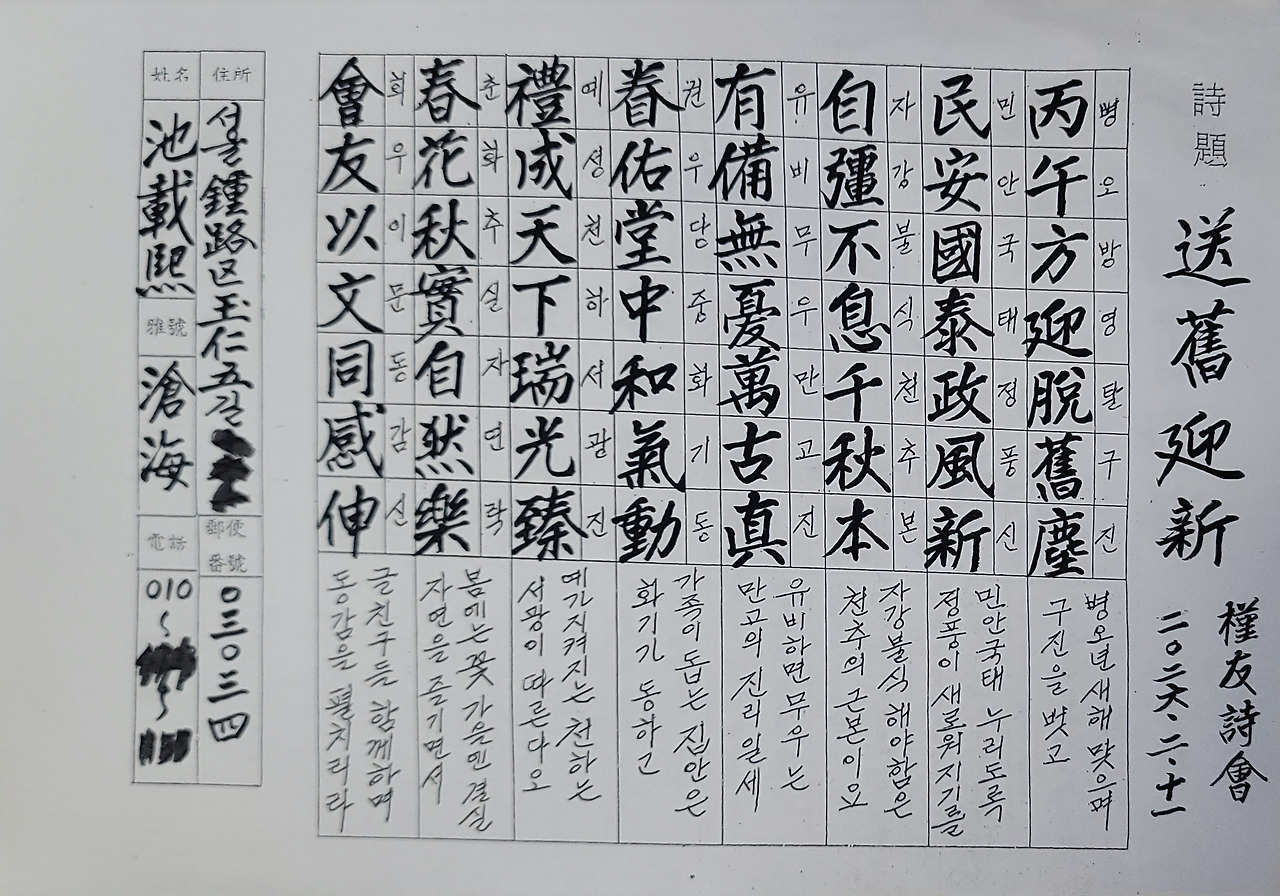 詩題 送舊迎新
槿友詩會
二〇二六.二.十一
丙午方迎脫舊塵
병오방영탈구진
병오년새해맞으며
구진을 벗고
民安國泰政風新
민안국태정풍신
민안국태 누리도록
정풍이새로워지기를
自彊不息千秋本
자강불식천추본
자강불식해야함은
천추의근본이요
有備無憂萬古真
유비무우만고진
유비하면무우는
만고의 진리일세
眷佑堂中和氣動
권우당중화기동
가족이돕는 집안은
화기가 동하고
禮成天下瑞光臻
예성천하서광진
예가지켜지는 천하는
서광이 따른다오
春花秋實自然樂
춘화추실자연락
봄에는꽃 가을엔결실
자연을즐기면서
會友以文同感伸
회우이문동감신
글친구들 함께하며
동감을 펼치리라
住所 서울 鍾路区玉仁五길
郵便番號 〇三〇三四
姓名 池載熙
雅號 滄海
電話 010~ ~